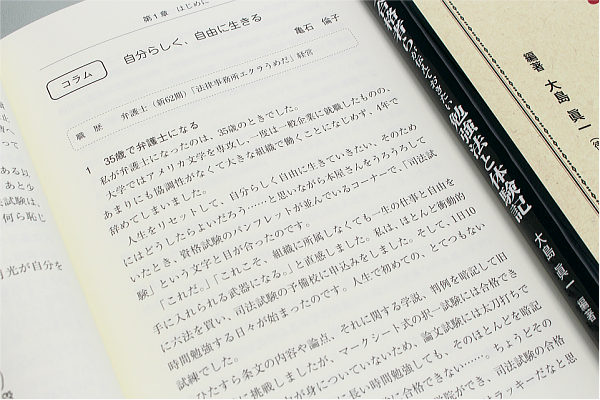 第1章 はじめに
コラム
自分らしく、自由に生きる
亀石 倫子
職 歴 弁護士(新62期)「法律事務所エクラうめだ」経営
1 35歳で弁護士になる
私が弁護士になったのは、35歳のときでした。
大学ではアメリカ文学を専攻し、一度は一般企業に就職したものの、
あまりにも協調性がなくて大きな組織で働くことになじめず、4年で
辞めてしまいました。
人生をリセットして、自分らしく自由に生きていきたい、そのため
にはどうしたらよいだろう……と思いながら本屋さんをうろうろして
いたとき、資格試験のパンフレットが並んでいるコーナーで、「司法試
験」という文字と目が合ったのです。
「これだ。」「これこそ、組織に所属しなくても一生の仕事と自由を
手に入れられる武器になる。」と直感しました。私は、ほとんど衝動的
に六法を買い、司法試験の予備校に申込みをしました。そして、1日10
時間勉強する日々が始まったのです。人生で初めての、とてつもない
試練でした。
ひたすら条文の内容や論点、それに関する学説、判例を暗記して旧
に挑戦しましたが、マークシート式の択一試験には合格でき
が身についていないため、論文試験には太刀打ちで
に長い時間勉強しても、そのほとんどを暗記
験に合格できない……。ちょうどその
学院ができ、司法試験の合格
ラッキーだなと思
ある以
あと少
試験は、
何ら恥じ
光が自分を
勉強法と体験記
大島 眞一 編著
編著 大島 眞一